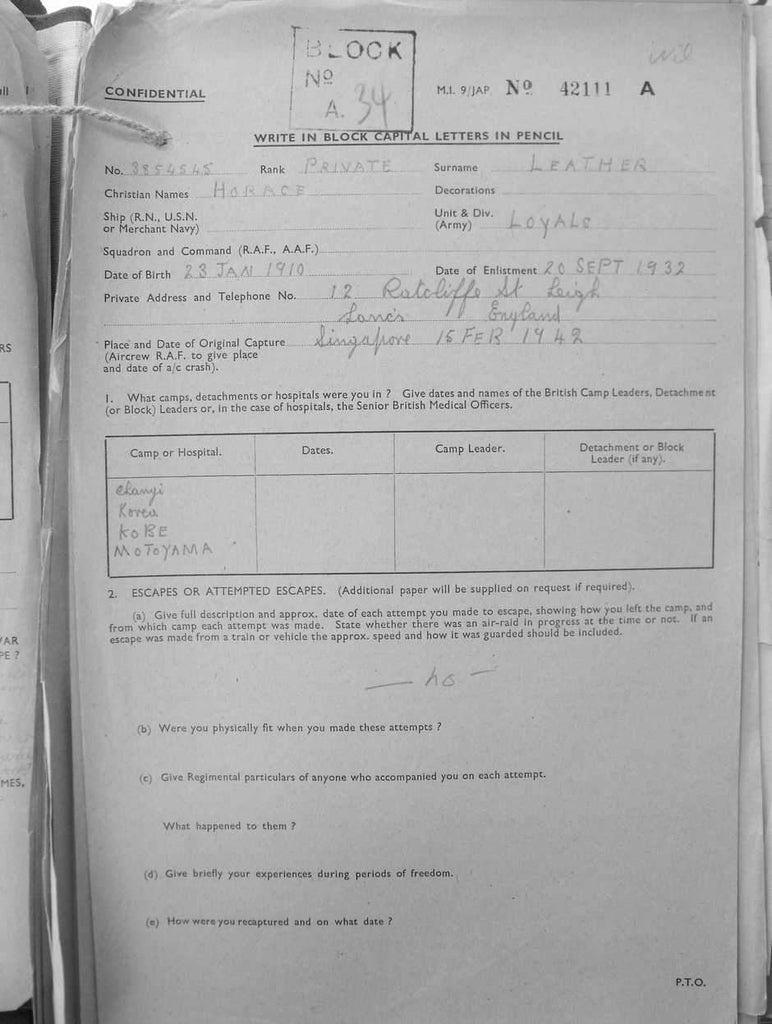 BLOCK
Nº
A. 34
Nil
CONFIDENTIAL
M.I. 9/JAP Nº 42111 A
WRITE IN BLOCK CAPITAL LETTERS IN PENCIL
No. 3854545 Rank PRIVATE Surname LEATHER
Christian Names HORACE Decorations
Ship (R.N., U.S.N. or Merchant Navy) Unit & Div. (Army) LOYALS
Squadron and Command (R.A.F., A.A.F.)
Date of Birth 23 JAN 1910 Date of Enlistment 20 SEPT 1932
Private Address and Telephone No. 12 Ratcliffe St Leigh
Lancs England
Place and Date of Original Capture Singapore 15 FEB 1942
(Aircrew R.A.F. to give place
and date of a/c crash).
1. What camps, detachments or hospitals were you in ? Give dates and names of the British Camp Leaders, Detachment
(or Block) Leaders or, in the case of hospitals, the Senior British Medical Officers.
Camp or Hospital. Dates. Camp Leader. Detachment or Block Leader (if any).
Changi
Korea
KOBE
MOTOYAMA
2. ESCAPES OR ATTEMPTED ESCAPES. (Additional paper will be supplied on request if required).
(a) Give full description and approx. date of each attempt you made to escape, showing how you left the camp, and
from which camp each attempt was made. State whether there was an air-raid in progress at the time or not. If an
escape was made from a train or vehicle the approx. speed and how it was guarded should be included.
— no —
(b) Were you physically fit when you made these attempts ?
(c) Give Regimental particulars of anyone who accompanied you on each attempt.
What happened to them ?
(d) Give briefly your experiences during periods of freedom.
(e) How were you recaptured and on what date ?
P.T.O.